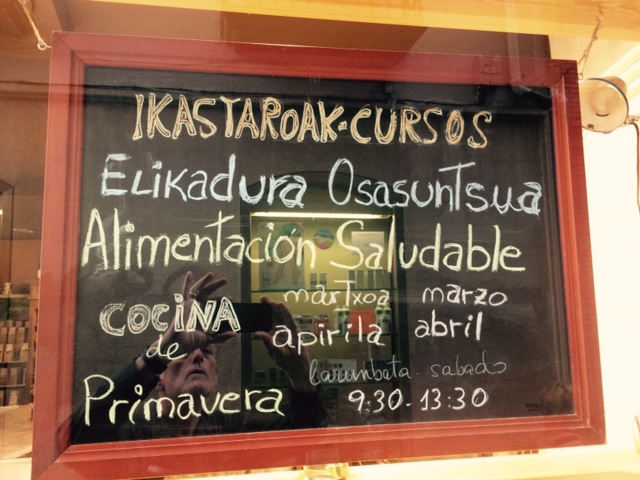 IKASTAROAK-CURSOS
ELIKADURA OSASUNTSUA
Alimentación Saludable
COCINA de Primavera
martxoa marzo
apirila abril
larunbata - sabado
9:30-13:30